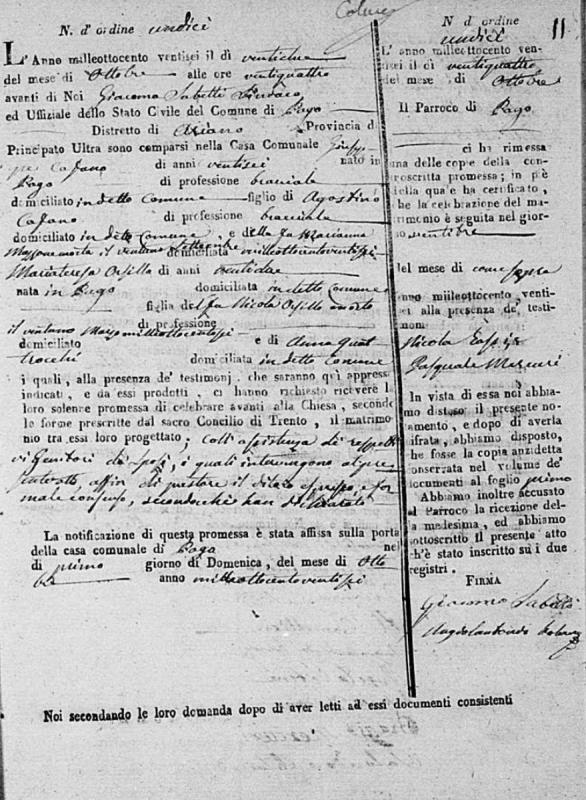 N. d' ordine undici
L' Anno milleottocento ventisei il dì ventidue
del mese di Ottobre alle ore ventiquattro
avanti di Noi Giacomo Sabetti Sindaco
ed Uffiziale dello Stato Civile del Comune di Pago
Distretto di Ariano Provincia di
Principato Ultra sono comparsi nella Casa Comunale
Cafano di anni ventisei nato in
Pago di professione bracciale
domiciliato in detto Comune figlio di Agostino
Cafano di professione bracciale
domiciliato in detto Comune, e della fu Marianna
morta il ventuno Settembre milleottocentoventisei
Mariateresa Orsillo di anni ventidue
nata in Pago domiciliata in detto Comune
figlia del fu Nicola Orsillo morto
il ventuno Marzo milleottocentosei di professione
domiciliato e di Anna Quat
trocchi domiciliata in detto Comune
i quali, alla presenza de' testimonj, che saranno quì appresso
indicati, e da essi prodotti, ci hanno richiesto ricevere la
loro solenne promessa di celebrare avanti alla Chiesa, secondo
le forme prescritte dal sacro Concilio di Trento, il matrimo-
nio tra essi loro progettato; coll' assistenza de' rispetti
vi Genitori de' Sposi, i quali intervengono al pre
sente atto, affin di prestare il di loro espresso, e for
male consenso, secondochè han dichiarato
La notificazione di questa promessa è stata affissa sulla porta
della casa comunale di Pago nel
dì primo giorno di Domenica, del mese di Otto
bre anno milleottocentoventisei
N d' ordine 11
undici
L' anno milleottocento ven-
tisei il dì ventiquattro
del mese di Ottobre
Il Parroco di Pago
ci ha rimessa
una delle copie della con-
troscritta promessa; in piè
della quale ha certificato,
che la celebrazione del ma-
trimonio è seguita nel gior-
no ventitre
del mese di come sopra
anno milleottocento venti-
sei alla presenza de' testi-
monj
Nicola
Pasquale Mercuri
In vista di essa noi abbia-
mo disteso il presente no-
tamento, e dopo di averla
cifrata, abbiamo disposto,
che fosse la copia anzidetta
conservata nel volume de'
documenti al foglio primo
Abbiamo inoltre accusato
al Parroco la ricezione del-
la medesima, ed abbiamo
sottoscritto il presente atto
ch'è stato inscritto su i due
registri.
FIRMA
Giacomo Sabetti
Noi secondando le loro demanda dopo di aver letti ad essi documenti consistenti